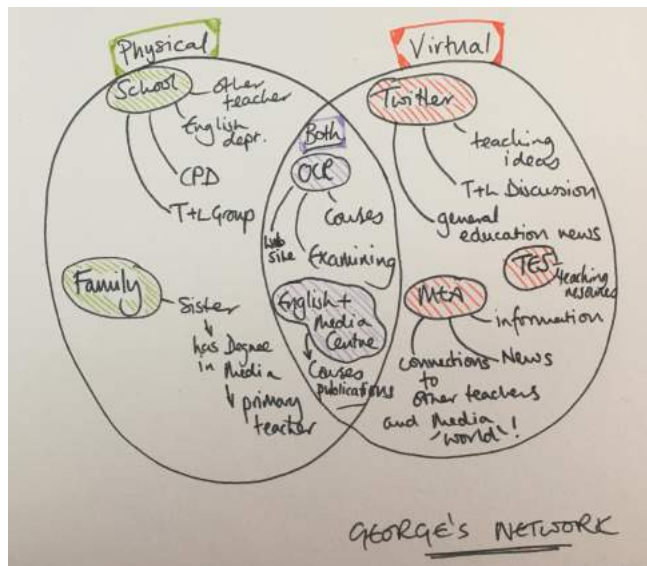 Physical
Virtual
School
other
teacher
English
dept.
CPD
T+L Group
Family
Sister
has Degree
in Media
primary
teacher
Both
OCR
Web
site
Courses
Examining
English +
Media
Centre
Courses
publications
Twitter
teaching
ideas
T+L Discussion
general
education news
TES
teaching
resources
MEA
information
News
connections
to
other teachers
and Media
'world'!
GEORGE'S NETWORK